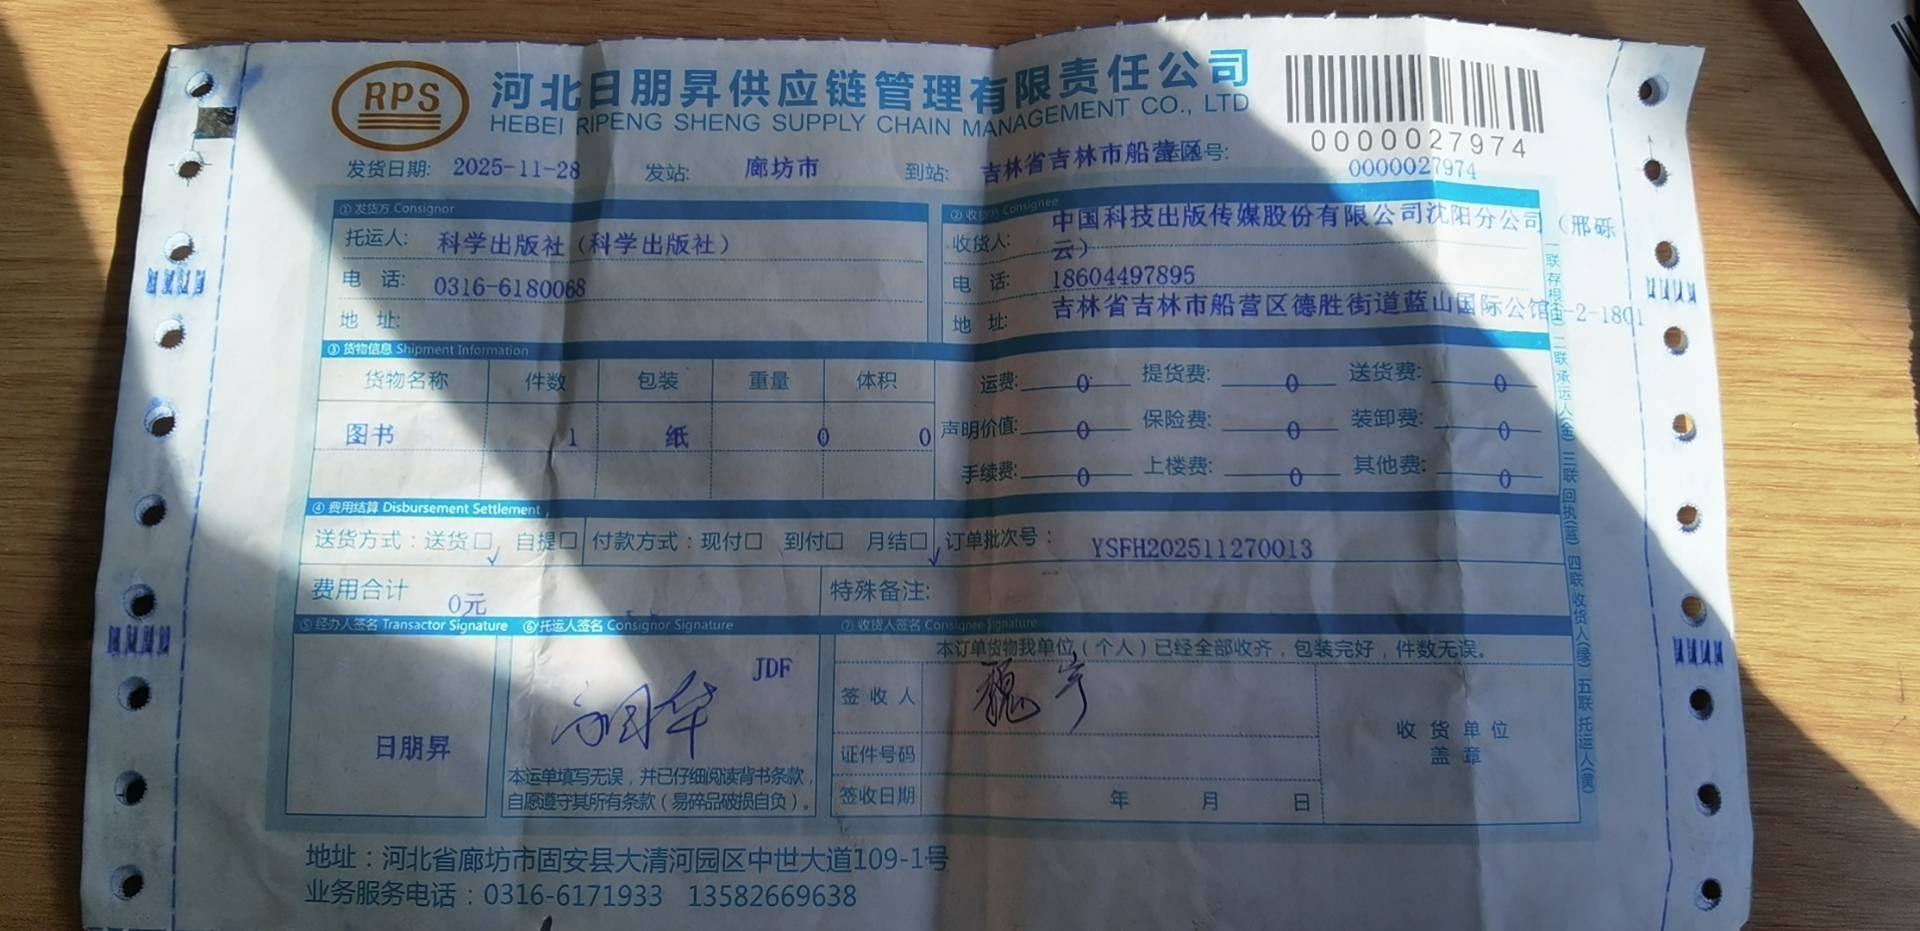 RPS
河北日朋昇供应链管理有限责任公司
HEBEI RIPENG SHENG SUPPLY CHAIN MANAGEMENT CO., LTD
0000027974
发货日期: 2025-11-28 发站: 廊坊市 到站: 吉林省吉林市船营区 号: 0000027974
① 发货方 Consignor
托运人: 科学出版社（科学出版社）
电 话: 0316-6180068
地 址:
② 收货方 Consignee
收货人: 中国科技出版传媒股份有限公司沈阳分公司（邢砾
云）
电 话: 18604497895
地 址: 吉林省吉林市船营区德胜街道蓝山国际公馆 -2-1801
③ 货物信息 Shipment Information
货物名称 件数 包装 重量 体积
图书 1 纸 0 0
运费: 0 提货费: 0 送货费: 0
声明价值: 0 保险费: 0 装卸费: 0
手续费: 0 上楼费: 0 其他费: 0
④ 费用结算 Disbursement Settlement
送货方式：送货□ √ 自提□ 付款方式：现付□ 到付□ 月结□ √ 订单批次号： YSFH202511270013
费用合计 0元 特殊备注:
⑤ 经办人签名 Transactor Signature
日朋昇
⑥ 托运人签名 Consignor Signature
JDF
本运单填写无误，并已仔细阅读背书条款，
自愿遵守其所有条款（易碎品破损自负）。
⑦ 收货人签名 Consignee Signature
本订单货物我单位（个人）已经全部收齐，包装完好，件数无误。
签收人 魏宇
证件号码
签收日期 年 月 日
收货单位
盖章
一联 存根(白) 二联 承运人(金) 三联 回执(蓝) 四联 收货人(绿) 五联 托运人(黄)
地址：河北省廊坊市固安县大清河园区中世大道109-1号
业务服务电话：0316-6171933 13582669638